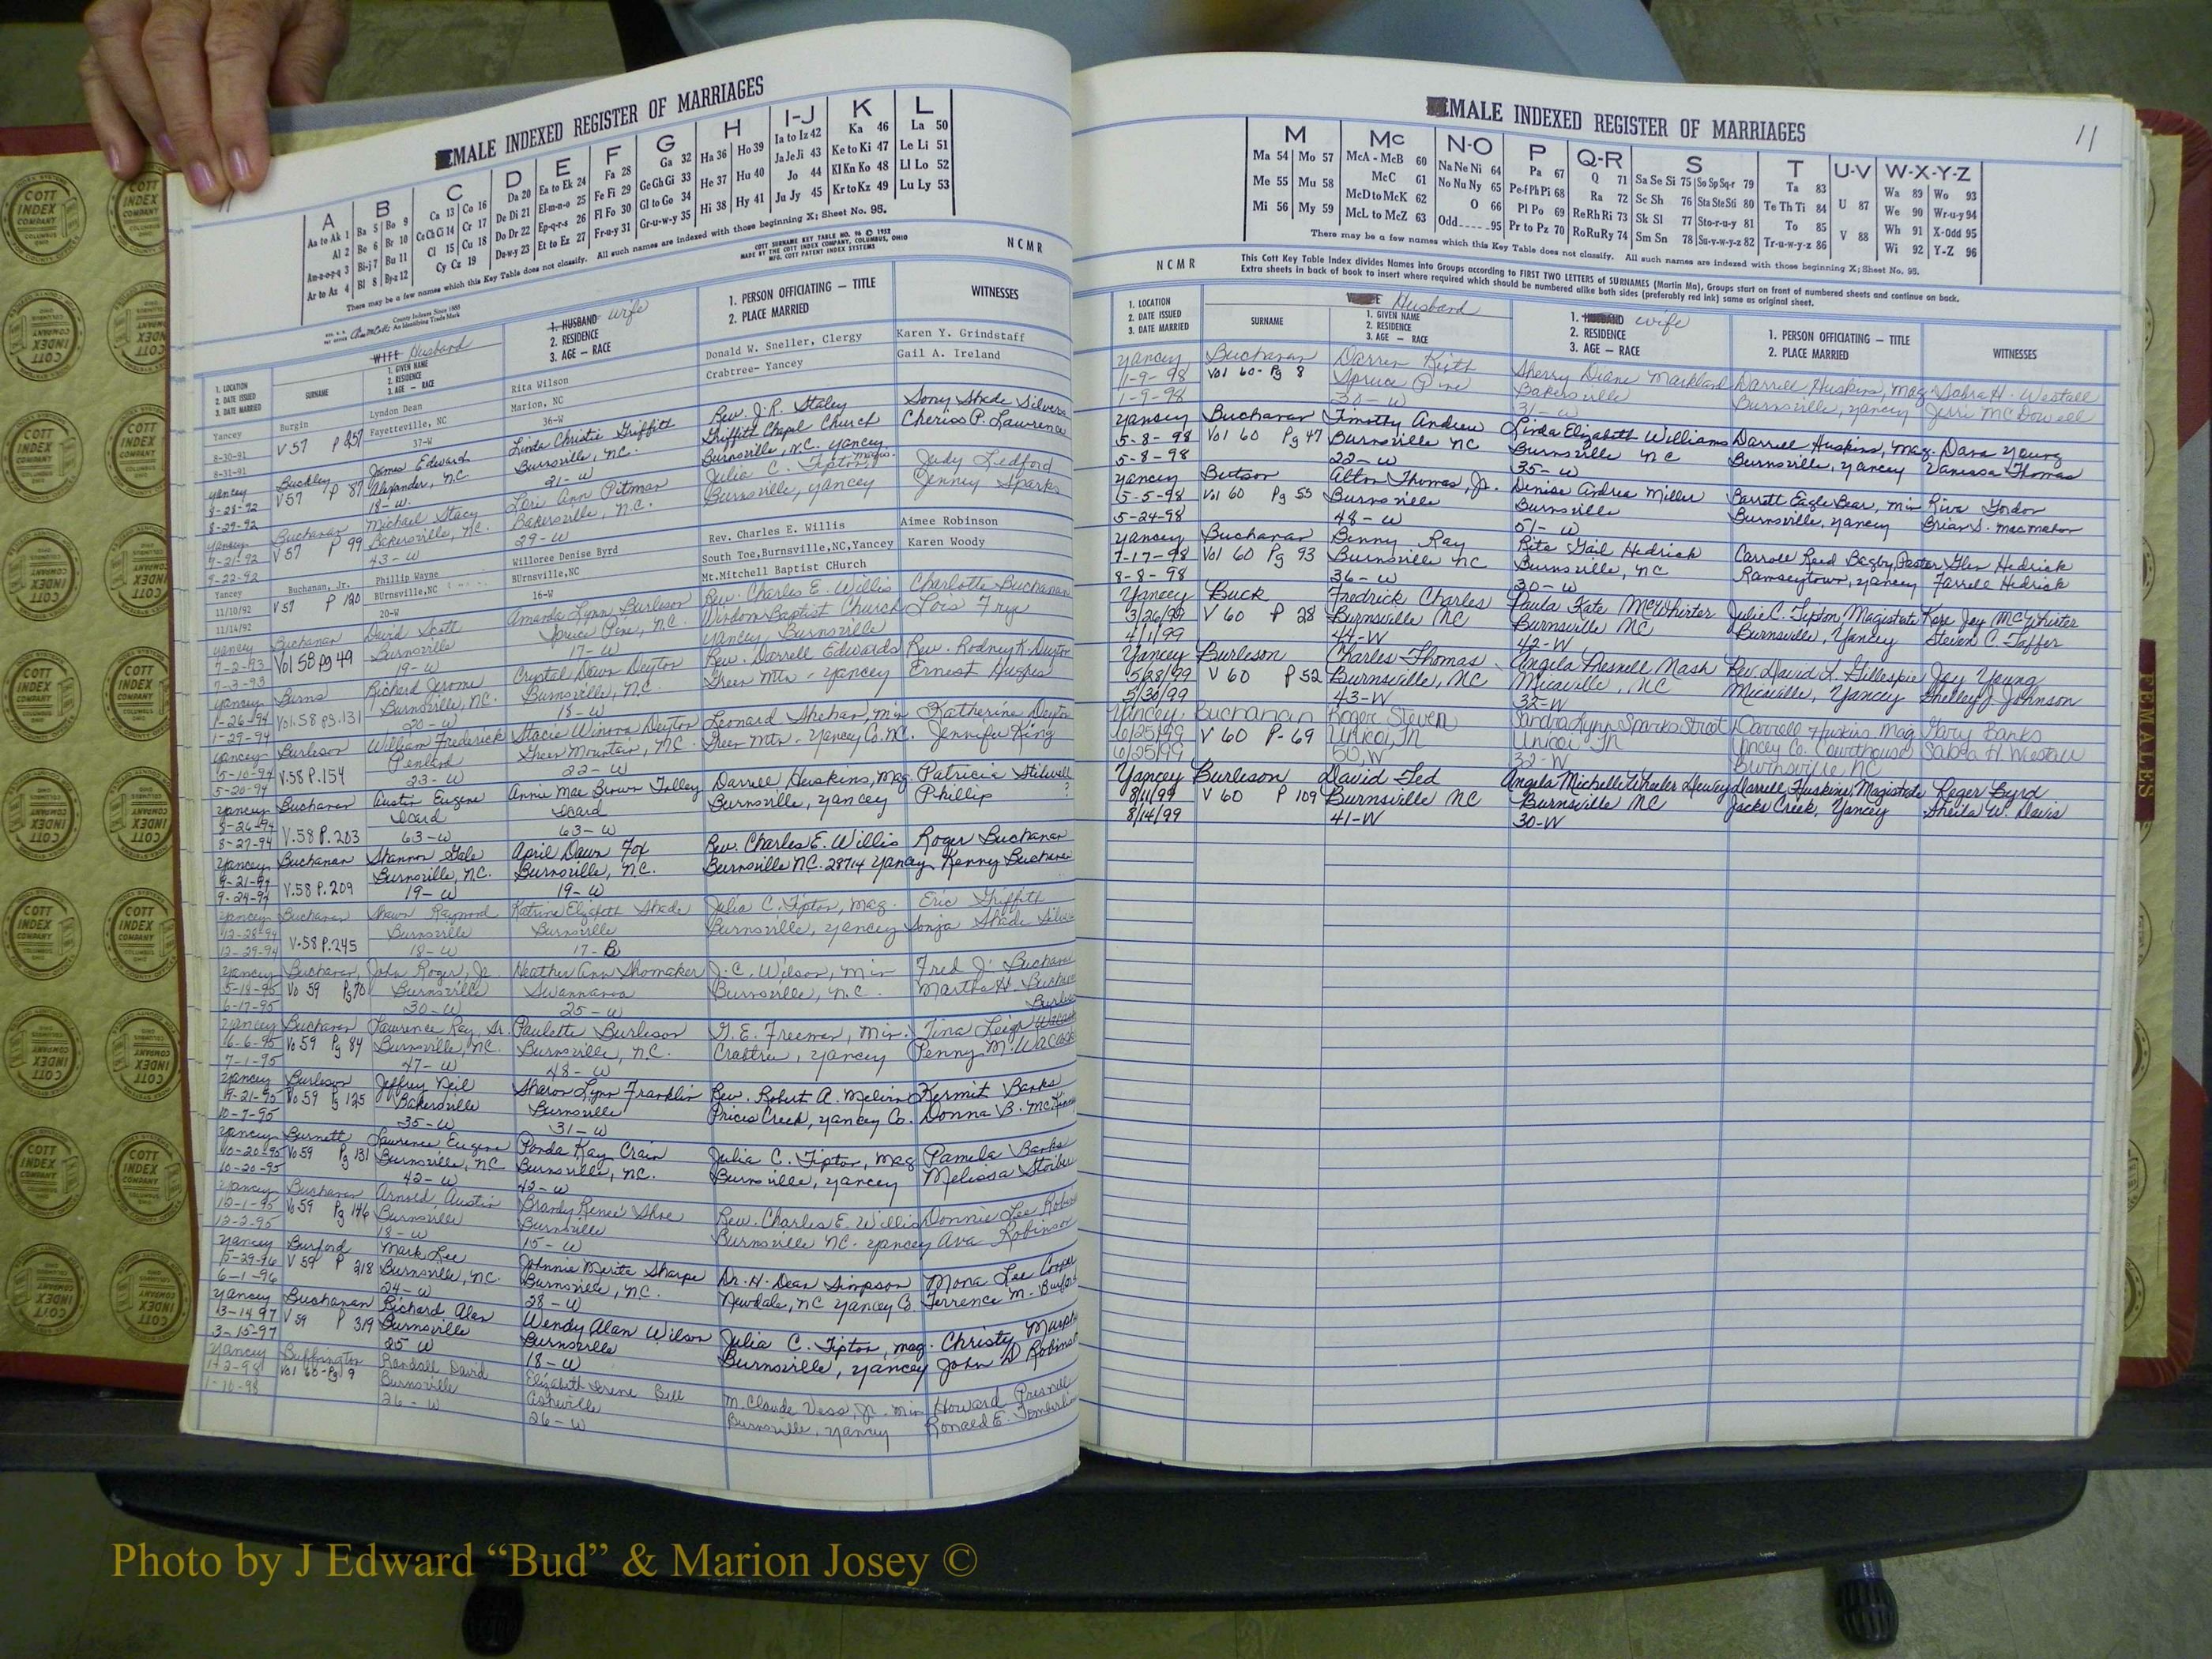 MALE INDEXED REGISTER OF MARRIAGES
A B C D E F G H I-J K L
Aa to Ak 1 Ba 5 Bo 9 Ca 13 Co 16 Da 20 Ea to Ek 24 Fa 28 Ga 32 Ha 36 Ho 39 Ia to Iz 42 Ka 46 La 50
Al 2 Be 6 Br 10 Ce Ch Ci 14 Cr 17 De Di 21 El-m-n-o 25 Fe Fi 29 Ge Gh Gi 33 He 37 Hu 40 Ja Je Ji 43 Ke to Ki 47 Le Li 51
Am-n-o-p-q 3 Bi-j 7 Bu 11 Cl 15 Cu 18 Do Dr 22 Ep-q-r-s 26 Fl Fo 30 Gl to Go 34 Hi 38 Hy 41 Jo 44 Kl Kn Ko 48 Ll Lo 52
Ar to Az 4 Bl 8 By-z 12 Cy Cz 19 Du-w-y 23 Et to Ez 27 Fr-u-y 31 Gr-u-w-y 35 Ju Jy 45 Kr to Kz 49 Lu Ly 53
There may be a few names which this Key Table does not classify. All such names are indexed with those beginning X; Sheet No. 95.
County Indexes Since 1888
An Identifying Trade Mark
COTT SURNAME KEY TABLE NO. 96 © 1952
MADE BY THE COTT INDEX COMPANY, COLUMBUS, OHIO
MFG. COTT PATENT INDEX SYSTEMS
NCMR
1. LOCATION
2. DATE ISSUED
3. DATE MARRIED
SURNAME
WIFE Husband
1. GIVEN NAME
2. RESIDENCE
3. AGE — RACE
1. HUSBAND wife
2. RESIDENCE
3. AGE — RACE
1. PERSON OFFICIATING — TITLE
2. PLACE MARRIED
WITNESSES
Yancey Burgin Lyndon Dean Rita Wilson Donald W. Sneller, Clergy Karen Y. Grindstaff
8-30-91 V 57 P 257 Fayetteville, NC Marion, NC Crabtree- Yancey Gail A. Ireland
8-31-91 37-W 36-W
Yancey Buckley James Edward Linda Christie Griffith Rev. J.R. Staley Sony Shade Silvers
8-28-92 V57 P 87 Alexander, N.C. Burnsville, N.C. Griffith Chapel Church Cheriss P. Lawrence
8-29-92 18-W. 21-W Burnsville, N.C. Yancey
Yancey Buchanan Michael Stacy Lori Ann Pitman Julia C. Tipton, Magis. Judy Ledford
9-21-92 V57 P 99 Bakersville, N.C. Bakersville, N.C. Burnsville, Yancey Jenney Sparks
9-22-92 43-W 29-W
Yancey Buchanan, Jr. Phillip Wayne Willoree Denise Byrd Rev. Charles E. Willis Aimee Robinson
11/10/92 V57 P 120 BUrnsville,NC BUrnsville,NC South Toe,Burnsville,NC,Yancey Karen Woody
11/14/92 20-W 16-W Mt.Mitchell Baptist CHurch
Yancey Buchanan David Scott Amanda Lynn Burleson Rev. Charles E. Willis Charlotte Buchanan
7-2-93 Vol 58 pg 49 Burnsville Spruce Pine, N.C. Windom Baptist Church Lois Frye
7-3-93 19-W 17-W Yancey, Burnsville
Yancey Burns Richard Jerome Crystal Dawn Deyton Rev. Darrell Edwards Rev. Rodney K. Deyton
1-26-94 Vol. 58 pg. 131 Burnsville, N.C. Burnsville, N.C. Green Mtn - Yancey Ernest Hughes
1-29-94 20-W 18-W
Yancey Burleson William Frederick Stacie Winona Deyton Leonard Shehan, Min Katherine Deyton
5-10-94 V.58 P.154 Penland Green Mountain, N.C. Green Mtn. - Yancey Co. N.C. Jennifer King
5-20-94 23-W 22-W
Yancey Buchanan Austin Eugene Annie Mae Brown Tolley Darrell Huskins, Mag Patricia Stilwell
8-26-94 V.58 P.203 Icard Icard Burnsville, Yancey Phillip ?
8-27-94 63-W 63-W
Yancey Buchanan Shannon Gale April Dawn Fox Rev. Charles E. Willis Roger Buchanan
9-21-94 V.58 P.209 Burnsville, N.C. Burnsville, N.C. Burnsville NC. 28714 Yancey Kenny Buchanan
9-24-94 19-W 19-W
Yancey Buchanan Shawn Raymond Katrina Elizabeth Shade Julia C. Tipton, Mag. Eric Griffith
12-28-94 V.58 P.245 Burnsville Burnsville Burnsville, Yancey Sonja Shade Silvers
12-29-94 18-W 17-B
Yancey Buchanan John Roger, Jr. Heather Ann Shomaker J.C. Wilson, Min Fred J. Buchanan
5-18-95 Vo 59 Pg 70 Burnsville Swannanoa Burnsville, N.C. Martha H. Buchanan
6-17-95 30-W 25-W
Yancey Buchanan Lawrence Ray, Sr. Paulette Burleson G.E. Freeman, Min. Tina Leigh
6-6-95 Vo 59 Pg 84 Burnsville, N.C. Burnsville, N.C. Crabtree, Yancey Penny M.
7-1-95 47-W 48-W
Yancey Burleson Jeffrey Neil Sharon Lynn Franklin Rev. Robert A. Melvin Kermit Banks
9-21-95 Vo 59 Pg 125 Bakersville Burnsville Prices Creek, Yancey Co. Donna B.
10-7-95 35-W 31-W
Yancey Burnett Lawrence Eugene Ronda Kay Crain Julia C. Tipton, Mag Pamela Banks
10-20-95 Vo 59 Pg 131 Burnsville, NC Burnsville, N.C. Burnsville, Yancey Melissa
10-20-95 42-W 42-W
Yancey Buchanan Arnold Austin Brandy Renee' Shoe Rev. Charles E. Willis Donnie Lee
12-1-95 Vo 59 Pg 146 Burnsville Burnsville Burnsville NC. Yancey Ava Robinson
12-2-95 18-W 15-W
Yancey Burford Mark Lee Johnnie Merita Sharpe Dr. H. Dean Simpson Mona Lee Cooper
5-29-96 V 59 P 218 Burnsville, NC. Burnsville, N.C. Newdale, NC Yancey Co Terrence M.
6-1-96 24-W 28-W
Yancey Buchanan Richard Alan Wendy Alan Wilson Julia C. Tipton, Mag. Christy
3-14-97 V 59 P 319 Burnsville Burnsville Burnsville, Yancey John D
3-15-97 25 W 18-W
Yancey Buffington Randall David Elizabeth Irene Bell M. Claude Vess, Jr. Min Howard Presnell
1-2-98 Vol 60-Pg 9 Burnsville Asheville Burnsville, Yancey Ronald E.
1-10-98 26-W 26-W
MALE INDEXED REGISTER OF MARRIAGES
11
M Mc N-O P Q-R S T U-V W-X-Y-Z
Ma 54 Mo 57 McA - McB 60 Na Ne Ni 64 Pa 67 Q 71 Sa Se Si 75 So Sp Sq-r 79 Ta 83 U 87 Wa 89 Wo 93
Me 55 Mu 58 McC 61 No Nu Ny 65 Pe-f Ph Pi 68 Ra 72 Sc Sh 76 Sta Ste Sti 80 Te Th Ti 84 V 88 We 90 Wr-u-y 94
Mi 56 My 59 McD to McK 62 O 66 Pl Po 69 Re Rh Ri 73 Sk Sl 77 Sto-r-u-y 81 To 85 Wh 91 X-Odd 95
McL to McZ 63 Odd 95 Pr to Pz 70 Ro Ru Ry 74 Sm Sn 78 Su-v-w-y-z 82 Tr-u-w-y-z 86 Wi 92 Y-Z 96
There may be a few names which this Key Table does not classify. All such names are indexed with those beginning X; Sheet No. 95.
NCMR
This Cott Key Table Index divides Names into Groups according to FIRST TWO LETTERS of SURNAMES (Martin Ma), Groups start on front of numbered sheets and continue on back.
Extra sheets in back of book to insert where required which should be numbered alike both sides (preferably red ink) same as original sheet.
1. LOCATION
2. DATE ISSUED
3. DATE MARRIED
SURNAME
Husband
1. GIVEN NAME
2. RESIDENCE
3. AGE — RACE
1. HUSBAND wife
2. RESIDENCE
3. AGE — RACE
1. PERSON OFFICIATING — TITLE
2. PLACE MARRIED
WITNESSES
Yancey Buchanan Darren Keith Sherry Diane Markland Darrell Huskins, Mag. Sabra H. Westall
1-9-98 Vol 60-Pg 8 Spruce Pine Bakersville Burnsville, Yancey Jerri McDowell
1-9-98 30-W 31-W
Yancey Buchanan Timothy Andrew Linda Elizabeth Williams Darrell Huskins, Mag. Dara Young
5-8-98 Vol 60 Pg 47 Burnsville NC Burnsville NC Burnsville, Yancey Vanessa Thomas
5-8-98 22-W 35-W
Yancey Butson Alton Thomas, Jr. Denise Andrea Miller Barrett Eagle Bear, Min Riva Gordon
5-5-98 Vol 60 Pg 55 Burnsville Burnsville Burnsville, Yancey Brian S. MacMahon
5-24-98 48-W 51-W
Yancey Buchanan Benny Ray Rita Gail Hedrick Carroll Reed Bagby, Pastor Glen Hedrick
7-17-98 Vol 60 Pg 93 Burnsville NC Burnsville, NC Ramseytown, Yancey Farrell Hedrick
8-8-98 36-W 30-W
Yancey Buck Fredrick Charles Paula Kate McWhirter Julie C. Tipton, Magistrate Kare Jay McWhirter
3/26/99 V 60 P 28 Burnsville NC Burnsville NC Burnsville, Yancey Steven C. Taffer
4/1/99 44-W 42-W
Yancey Burleson Charles Thomas Angela Presnell Nash Rev. David L. Gillespie Joy Young
5/28/99 V 60 P 52 Burnsville, NC Micaville, NC Micaville, Yancey Shelley J. Johnson
5/30/99 43-W 32-W
Yancey Buchanan Roger Steven Sandra Lynn Sparks Street Darrell Huskins Mag Gary Banks
6/25/99 V 60 P-69 Unicoi, Tn Unicoi Tn Yancey Co. Courthouse Sabra H Westall
6/25/99 50, W 32-W Burnsville NC
Yancey Burleson David Ted Angela Michelle Wheeler Dewey Darrell Huskins, Magistrate Roger Byrd
8/11/99 V 60 P 109 Burnsville NC Burnsville NC Jacks Creek, Yancey Sheila W. Davis
8/14/99 41-W 30-W
FEMALES
COTT INDEX COMPANY
Photo by J Edward “Bud” & Marion Josey ©